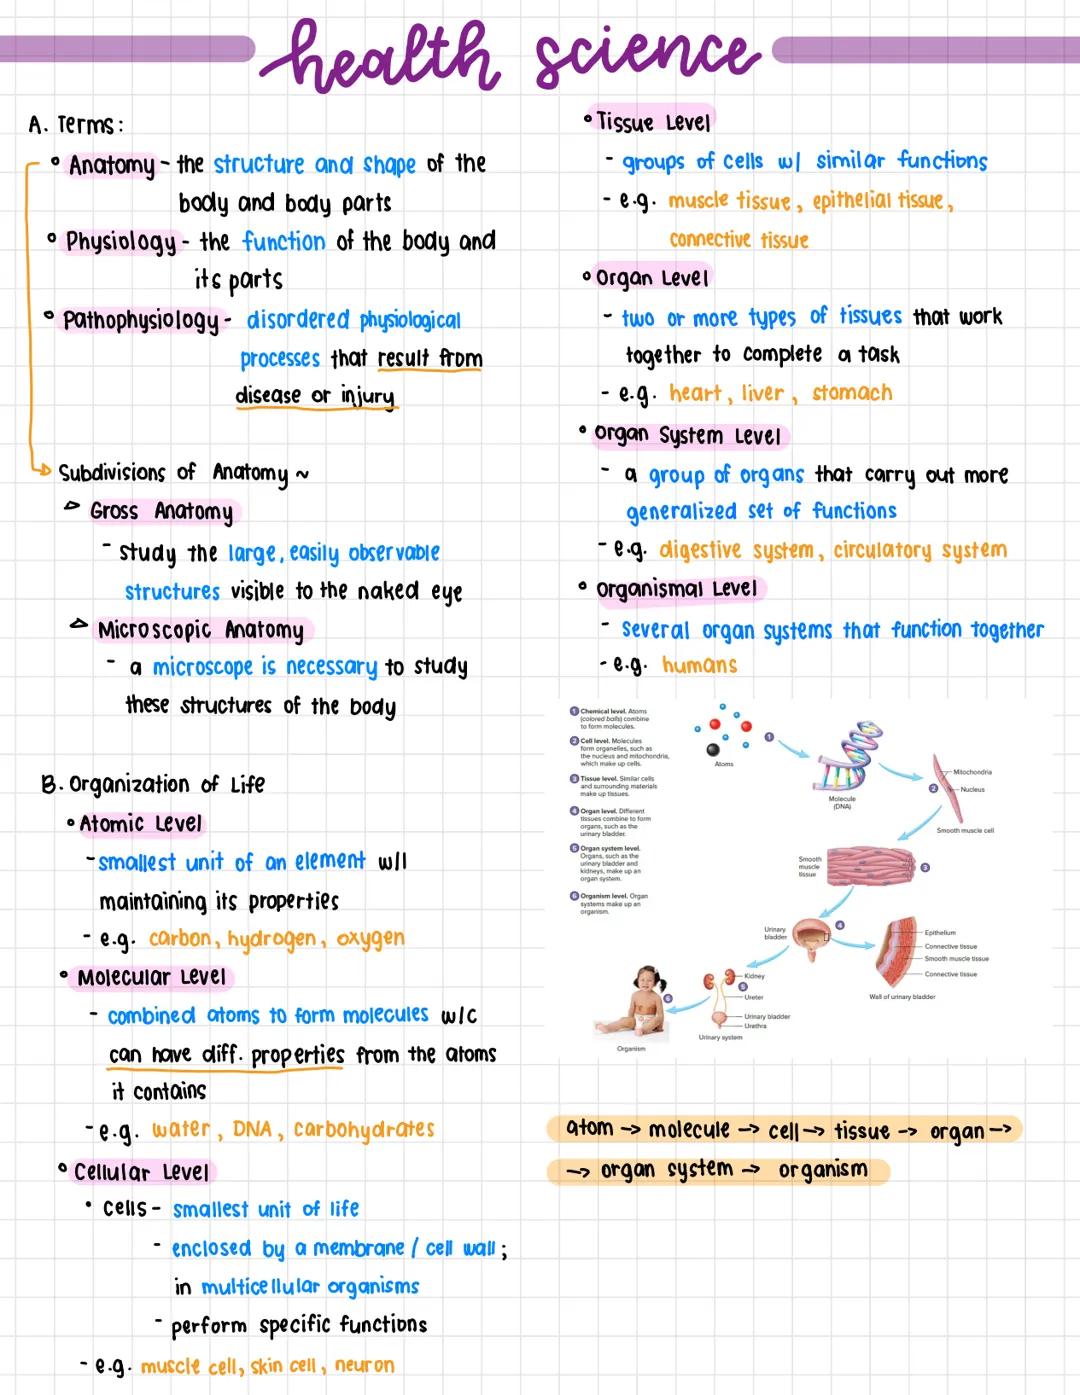 health science
A. Terms:
Anatomy - the structure and shape of the
body and body parts
Physiology - the function of the body and
its parts
Pathophysiology - disordered physiological
processes that result from
disease or injury
Subdivisions of Anatomy ~
Gross Anatomy
- study the large, easily observable
structures visible to the naked eye
Microscopic Anatomy
- a microscope is necessary to study
these structures of the body
B. Organization of Life
• Atomic Level
- smallest unit of an element w/l
maintaining its properties
- e.g. carbon, hydrogen, oxygen
• Molecular Level
- combined atoms to form molecules w/c
can have diff. properties from the atoms
it contains
- e.g. water, DNA, carbohydrates
• Cellular Level
• Cells - smallest unit of life
- enclosed by a membrane / cell wall;
in multicellular organisms
- perform specific functions
- e.g. muscle cell, skin cell, neuron
• Tissue Level
- groups of cells w/ similar functions
- e.g. muscle tissue, epithelial tissue,
connective tissue
• Organ Level
- two or more types of tissues that work
together to complete a task
- e.g. heart, liver, stomach
• Organ System Level
- a group of organs that carry out more
generalized set of functions
- e.g. digestive system, circulatory system
• Organismal Level
- several organ systems that function together
- e.g. humans
1 Chemical level. Atoms
(colored balls) combine
to form molecules.
2 Cell level. Molecules
form organelles, such as
the nucleus and mitochondria,
which make up cells.
3 Tissue level. Similar cells
and surrounding materials
make up tissues.
4 Organ level. Different
tissues combine to form
organs, such as the
urinary bladder.
5 Organ system level.
Organs, such as the
urinary bladder and
kidneys, make up an
organ system.
6 Organism level. Organ
systems make up an
organism.
Atoms
1
Molecule
(DNA)
2
Mitochondria
Nucleus
Smooth muscle cell
Smooth
muscle
tissue
3
Urinary
bladder
4
Epithelium
Connective tissue
Smooth muscle tissue
Connective tissue
Wall of urinary bladder
Kidney
5
Ureter
Urinary bladder
Urethra
Urinary system
6
Organism
atom -> molecule -> cell -> tissue -> organ ->
-> organ system -> organism